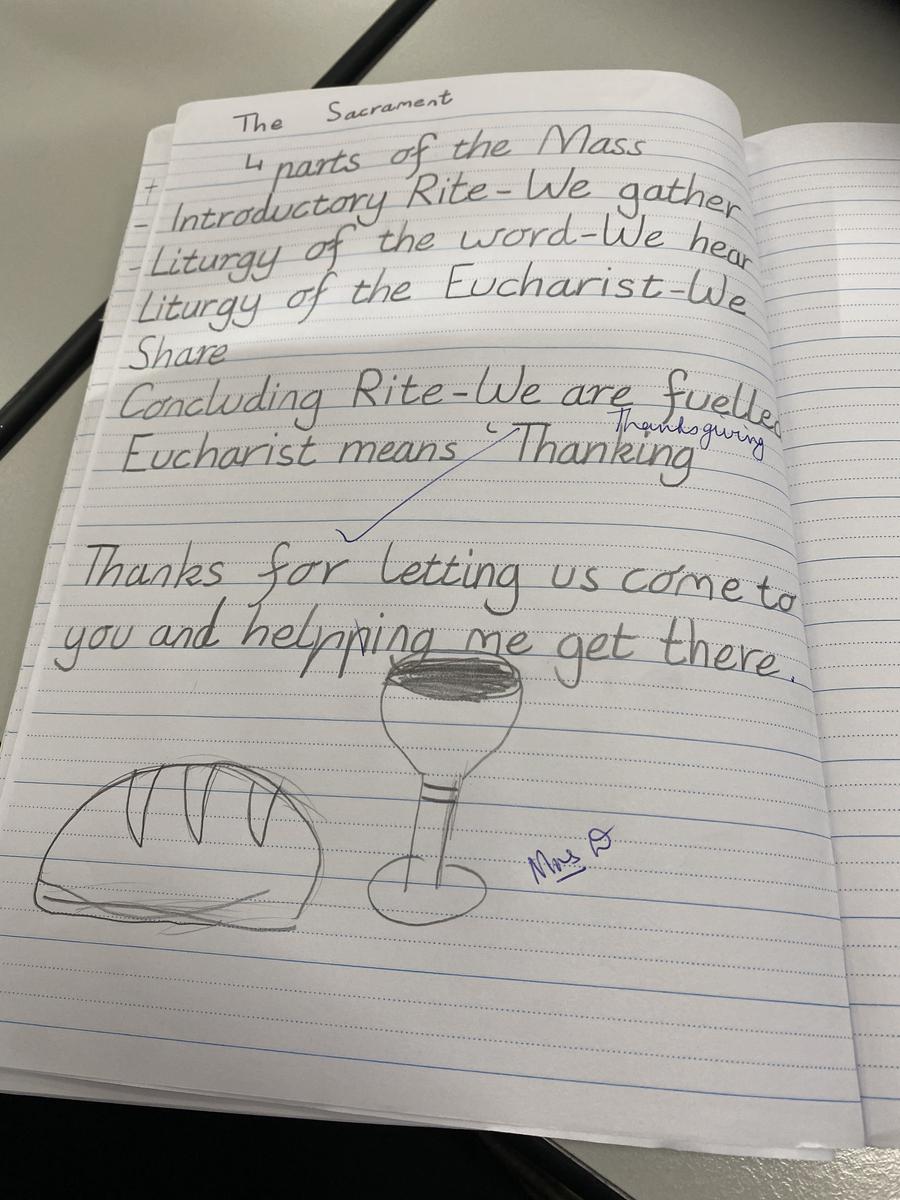 The Sacrament
4 parts of the Mass
- Introductory Rite - We gather
- Liturgy of the word - We hear
Liturgy of the Eucharist - We
Share
Concluding Rite - We are fuelled
Thanksgiving
Eucharist means Thanking
Thanks for letting us come to
you and helpping me get there.
Mrs D